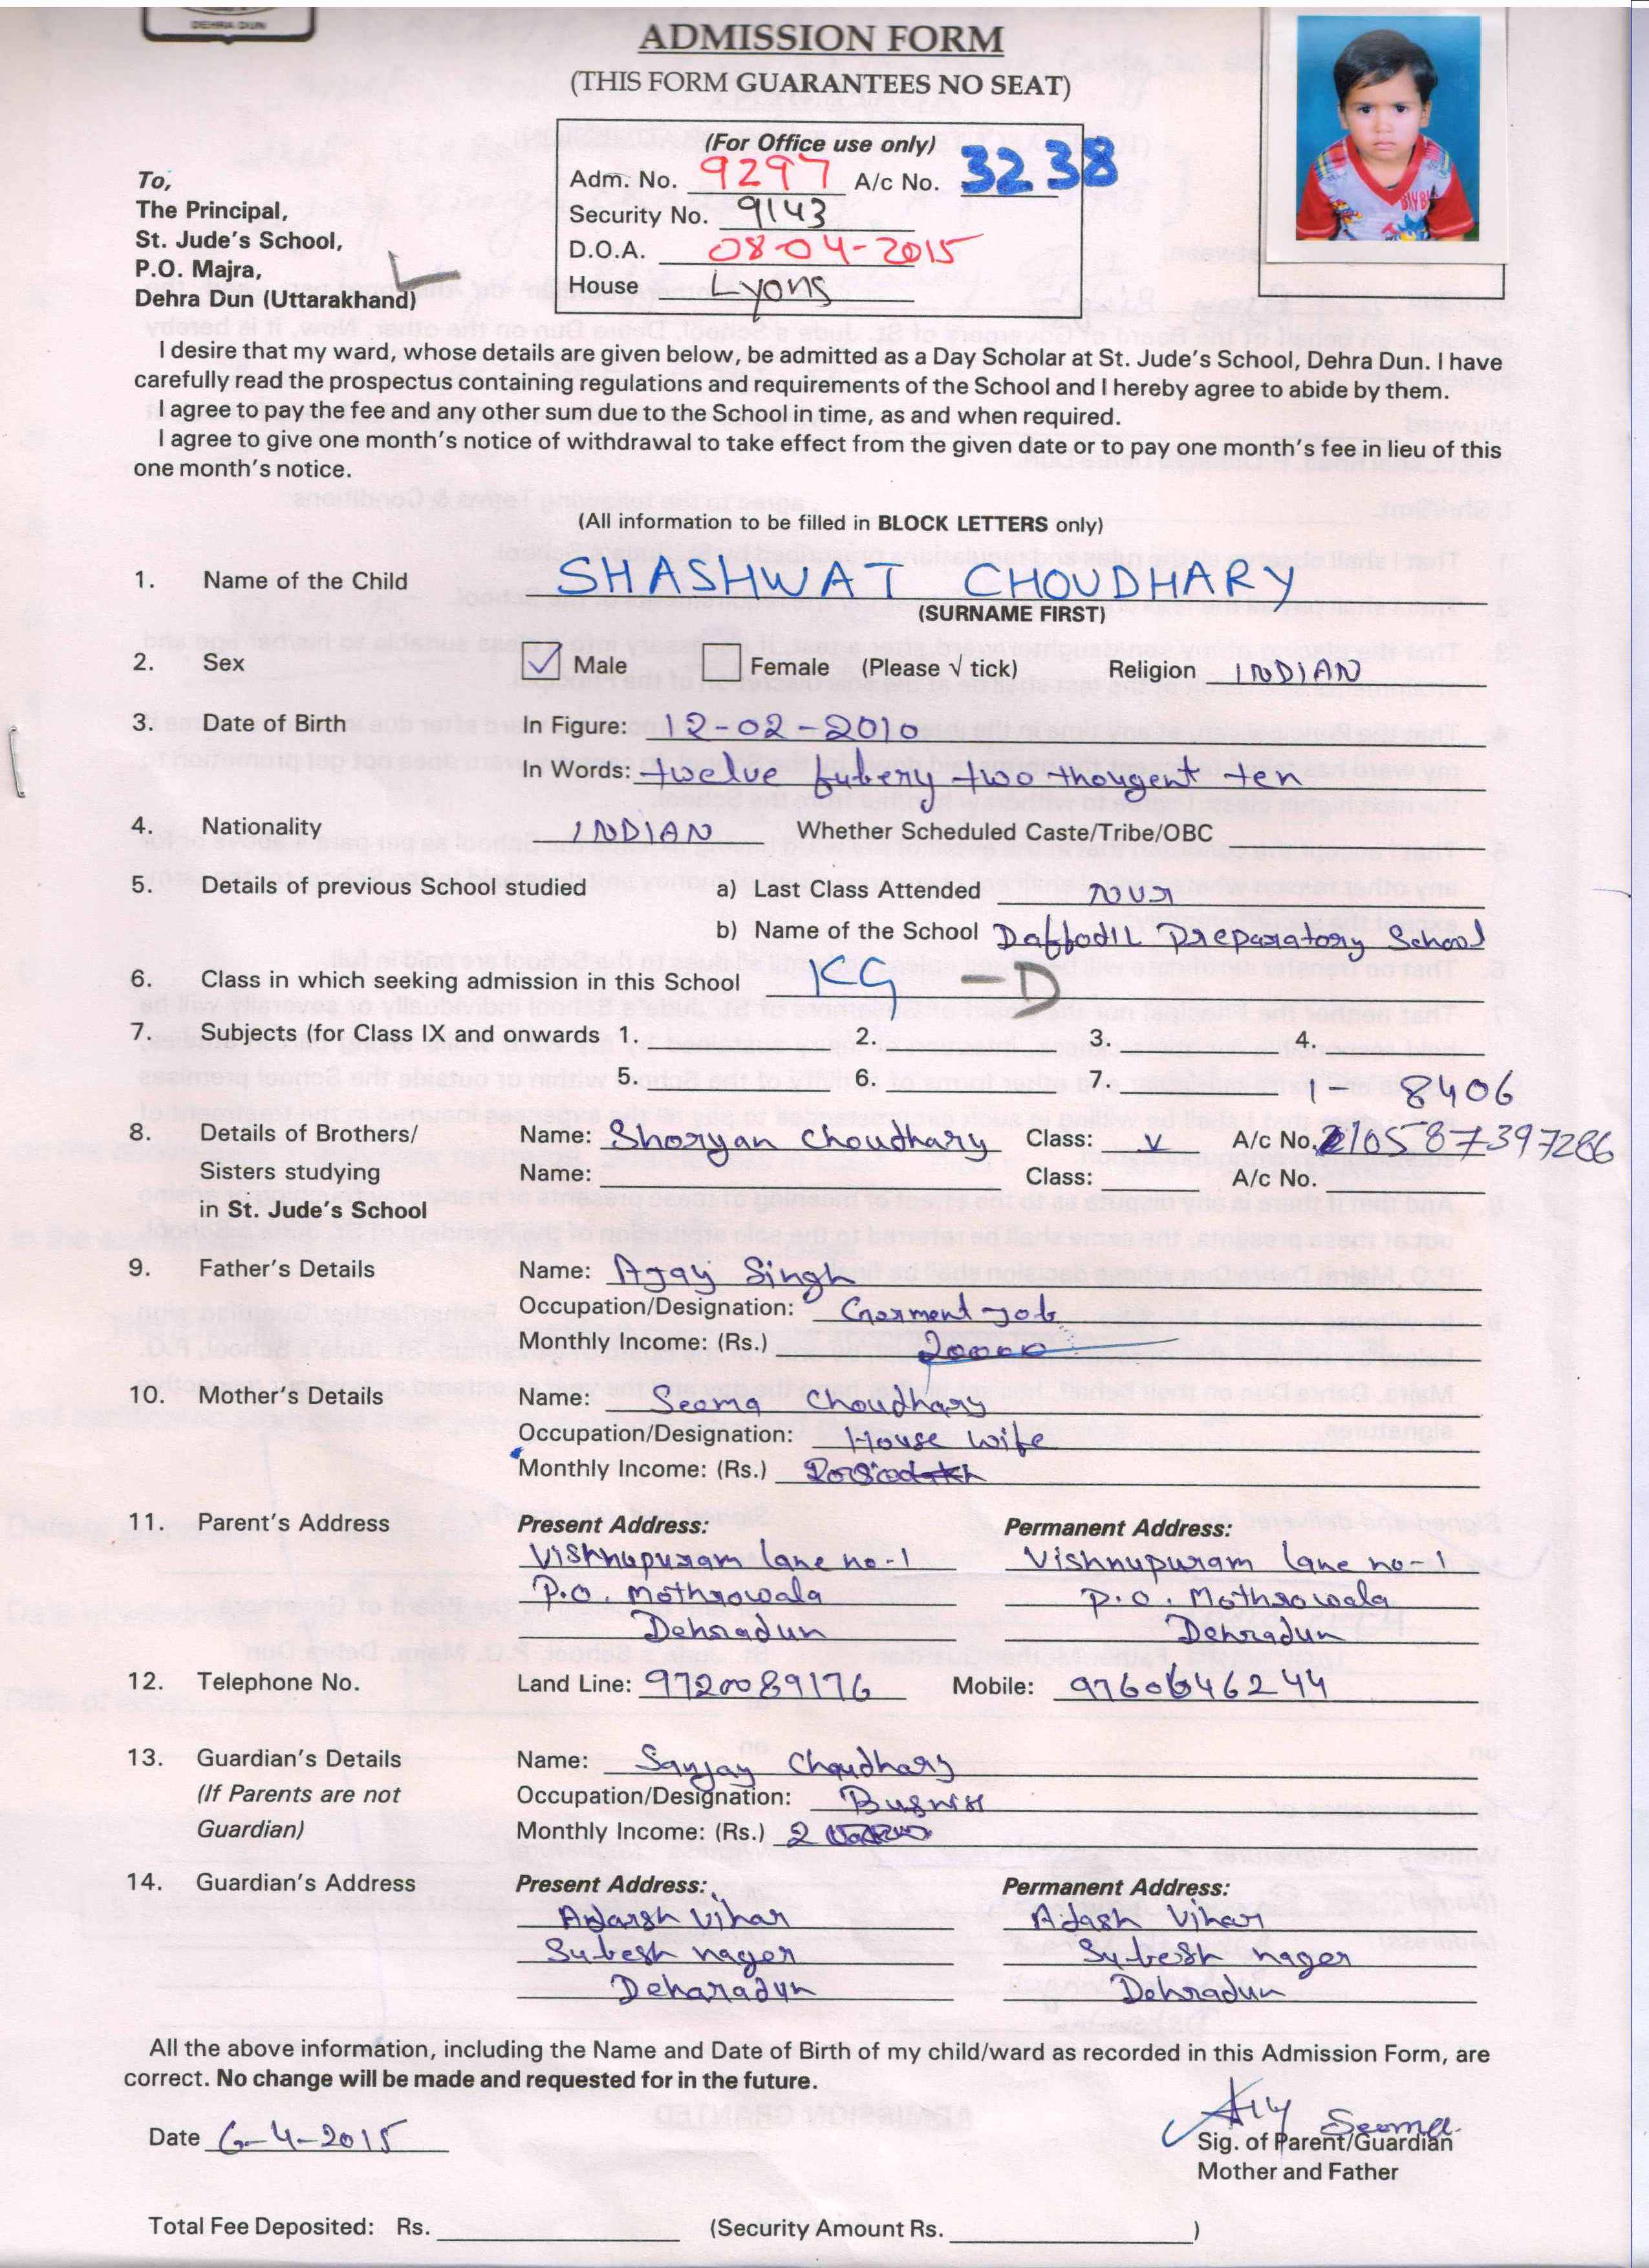 DEHRA DUN
ADMISSION FORM
(THIS FORM GUARANTEES NO SEAT)
(For Office use only)
Adm. No. 9297 A/c No. 3238
Security No. 9143
D.O.A. 08-04-2015
House Lyons
To,
The Principal,
St. Jude's School,
P.O. Majra,
Dehra Dun (Uttarakhand)
I desire that my ward, whose details are given below, be admitted as a Day Scholar at St. Jude's School, Dehra Dun. I have
carefully read the prospectus containing regulations and requirements of the School and I hereby agree to abide by them.
I agree to pay the fee and any other sum due to the School in time, as and when required.
I agree to give one month's notice of withdrawal to take effect from the given date or to pay one month's fee in lieu of this
one month's notice.
(All information to be filled in BLOCK LETTERS only)
1. Name of the Child SHASHWAT CHOUDHARY
(SURNAME FIRST)
2. Sex Male Female (Please √ tick) Religion INDIAN
3. Date of Birth In Figure: 12-02-2010
In Words: twelve fubery two thougent ten
4. Nationality INDIAN Whether Scheduled Caste/Tribe/OBC
5. Details of previous School studied a) Last Class Attended NUR
b) Name of the School DaffodIL Preparatory School
6. Class in which seeking admission in this School KG - D
7. Subjects (for Class IX and onwards 1. 2. 3. 4.
5. 6. 7. 1 - 8406
8. Details of Brothers/ Name: Shoryan Choudhary Class: V A/c No.
Sisters studying Name: Class: A/c No.
in St. Jude's School
9. Father's Details Name: Ajay Singh
Occupation/Designation: Garment Job
Monthly Income: (Rs.) 20000
10. Mother's Details Name: Seema Choudhary
Occupation/Designation: House wife
Monthly Income: (Rs.)
11. Parent's Address Present Address: Permanent Address:
Vishnupuram lane no-1 Vishnupuram lane no-1
P.O. Mothrowala P.O. Mothrowala
Dehradun Dehradun
12. Telephone No. Land Line: 9720089176 Mobile: 9760646244
13. Guardian's Details Name: Sanjay Choudhary
(If Parents are not Occupation/Designation:
Guardian) Monthly Income: (Rs.) 2
14. Guardian's Address Present Address: Permanent Address:
Adarsh Vihar Adash Vihar
Subesh nager Subesh nager
Deharadun Dehradun
All the above information, including the Name and Date of Birth of my child/ward as recorded in this Admission Form, are
correct. No change will be made and requested for in the future.
Date 6-4-2015 Seema
Sig. of Parent/Guardian
Mother and Father
Total Fee Deposited: Rs. (Security Amount Rs. )